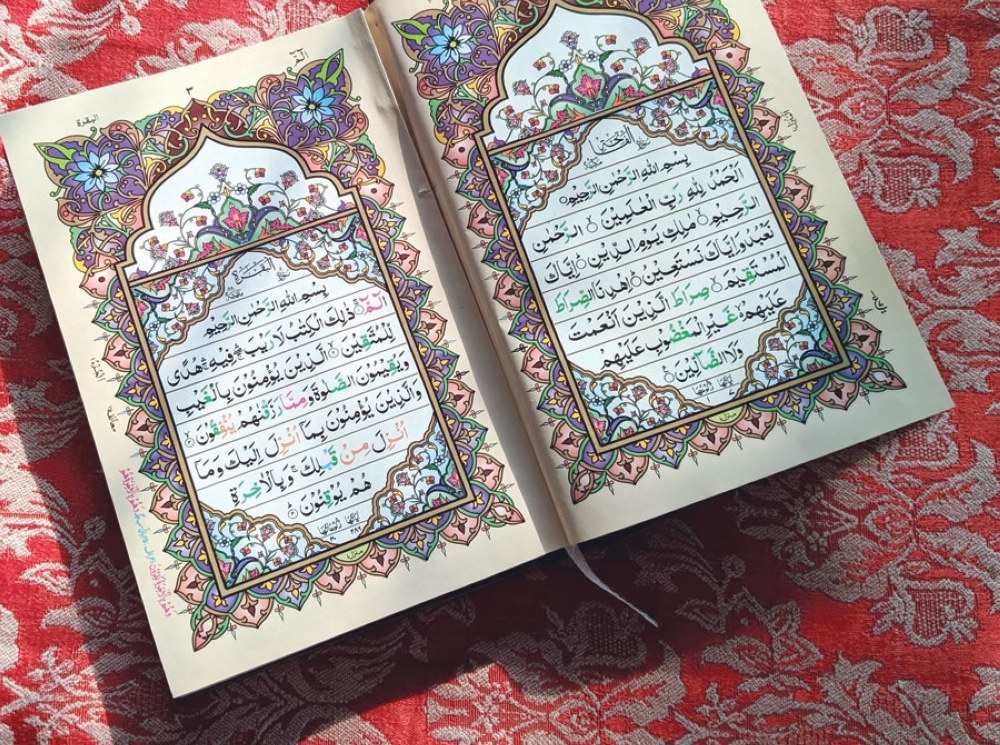 الفاتحة
بِسْمِ اللّٰهِ الرَّحْمٰنِ الرَّحِيْمِ
اَلْحَمْدُ لِلّٰهِ رَبِّ الْعٰلَمِيْنَ ۙ الرَّحْمٰنِ
الرَّحِيْمِ ۙ مٰلِكِ يَوْمِ الدِّيْنِ ؕ اِيَّاكَ
نَعْبُدُ وَاِيَّاكَ نَسْتَعِيْنُ ؕ اِهْدِنَا الصِّرَاطَ
الْمُسْتَقِيْمَ ۙ صِرَاطَ الَّذِيْنَ اَنْعَمْتَ
عَلَيْهِمْ ۙ غَيْرِ الْمَغْضُوْبِ عَلَيْهِمْ
وَلَا الضَّآلِّيْنَ
٣
البقرة
البقرة
بِسْمِ اللّٰهِ الرَّحْمٰنِ الرَّحِيْمِ
الٓمّٓ ۚ ذٰلِكَ الْكِتٰبُ لَا رَيْبَ ۛ فِيْهِ ۛ هُدًى
لِّلْمُتَّقِيْنَ ۙ الَّذِيْنَ يُؤْمِنُوْنَ بِالْغَيْبِ
وَيُقِيْمُوْنَ الصَّلٰوةَ وَمِمَّا رَزَقْنٰهُمْ يُنْفِقُوْنَ ۙ
وَالَّذِيْنَ يُؤْمِنُوْنَ بِمَاۤ اُنْزِلَ اِلَيْكَ وَمَاۤ
اُنْزِلَ مِنْ قَبْلِكَ ۚ وَبِالْاٰخِرَةِ
هُمْ يُوْقِنُوْنَ ؕ